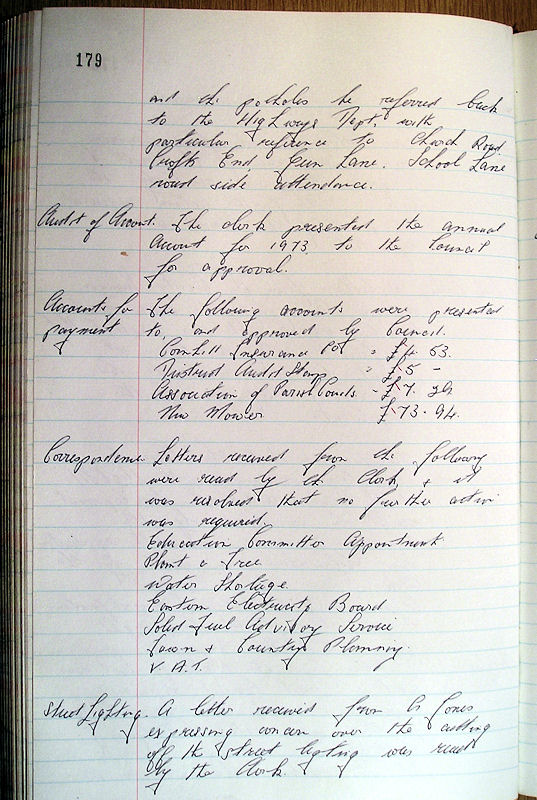 179
and the potholes be referred back
to the Highways Dept. with
particular reference to Church Road
Crofts End Gun Lane. School Lane
road side attendance.
Audit of Account. The clerk presented the annual
Account for 1973, to the Council
for approval.
Accounts for The following accounts were presented
payment to, and approved by Council.
Cornhill Insurance Pol = 53.
District Audit Stamp = £ 5 -
Association of Parish Councils - £ 7.
New Mower £ 73. 94.
Correspondence Letters received from the following
were read by the Clerk, & it
was resolved that no further action
was required.
Education Committee Appointment
Plant a Tree
Water Shortage.
Eastern Electricity Board
Solid Fuel Advisory Service
Town & Country Planning.
V.A.T.
Street Lighting. A letter received from Jones
expressing concern over the cutting
off the street lighting was read
by the Clerk.